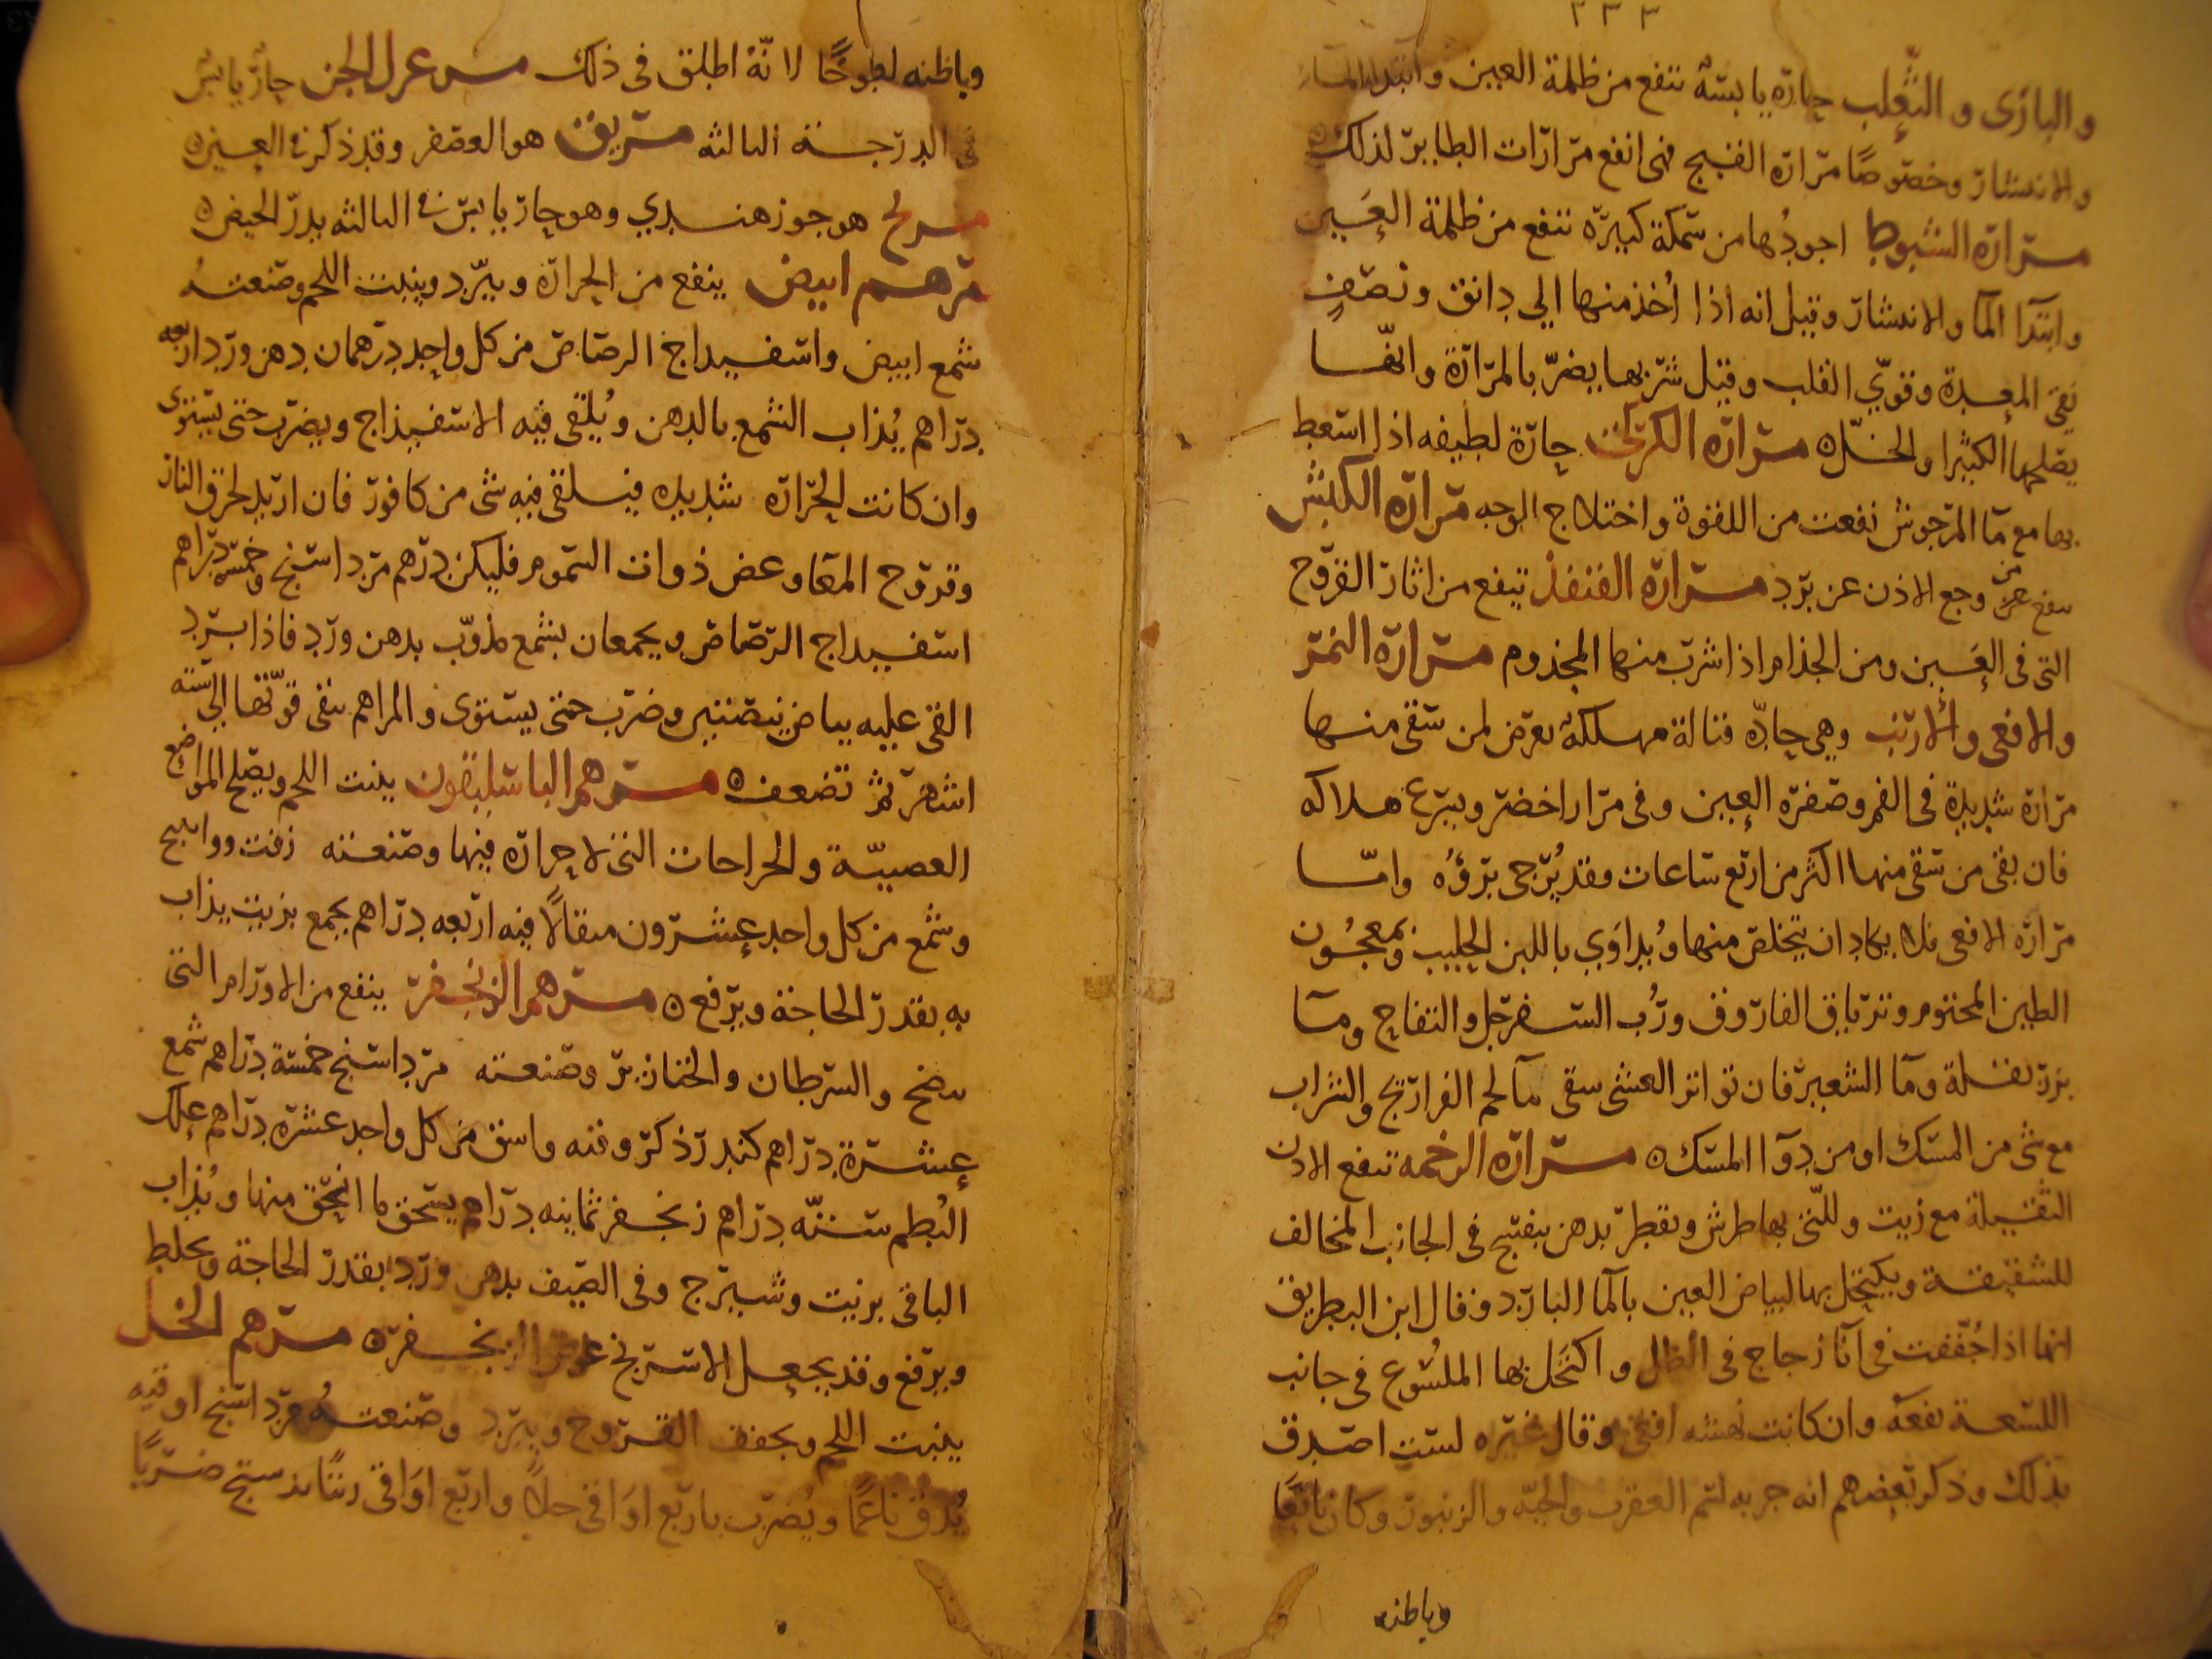 ٢٣٣
والبازى والثعلب حاره يابسة تنفع من ظلمة العين وابتدا الما
والانتشار وخصوصًا مراره القبج فهى انفع مرارات الطاير لذلك
مراره الشبوط اجودها من سمكة كبيرة تنفع من ظلمة العين
وابتدا الما والانتشار وقيل انه اذا أخذ منها الي دانق ونصف
نقى المعدة وقوّي القلب وقيل شربها يضرّ بالمرارة وانّما
يصلحها الكثيرا والخل مراره الكركى حارة لطيفه اذا استعط
بها مع مآ المرجوش نفعت من اللقوة واختلاج الوجه مراره الكبش
تنفع من وجع الاذن عن برد مراره القنفذ تنفع من اثار القروح
التى فى العين ومن الجذام اذا شرب منها المجذوم مراره النمر
والافعى والارنب وهي حادّه قتالة مهلكة يعرض لمن سقى منها
مراره شديدة فى الفم وصفره العين وفى مرار اخضر ويسرع هلاكه
فان بقى من سقى منها اكثر من اربع ساعات فقد يُرجى برؤه وامّا
مراره الافعى فلا يكاد ان يتخلص منها ويُداوي باللبن الحليب وبمعجون
الطين المختوم وترياق الفاروق ورُب السفرجل والتفاح ومآ
بزر بقلة ومآ الشعير فان تواتر الغشى سقى مآ لحم الفراريج والشراب
مع شى من المسك او من دوآ المسك مراره الرخمه تنفع الاذن
الثقيلة مع زيت وللتى بها طرش وتقطر بدهن بنفسج فى الجانب المخالف
للشقيقة ويكتحل بها لبياض العين بالمآ البارد وقال ابن البطريق
انها اذا جُففت فى انآ زجاج فى الظل واكتحل بها الملسوع فى جانب
اللسعة نفعه وان كانت نهشه افعى وقال غيره لست اصدق
بذلك وذكر بعضهم انه جربه لسم العقرب والحيّه والزنبور وكان نافعًا
وباطنه
وباطنه لطوخًا لانّهُ اطلق فى ذلك مسر عرل الجن حارّ يابس
فى الدرجة الثالثه مريق هو العصفر وقد ذكر فى العين
هو جوز هندي وهو حار يابس فى الثالثه يدرّ الحيض
مرهم ابيض ينفع من الحرارة ويبرّد وينبت اللحم وصنعته
شمع ابيض واسفيداج الرصاص من كل واحد درهمان دهن ورد اربعه
دراهم يُذاب الشمع بالدهن ويُلقى فيه الاسفيذاج ويضرب حتى يستوى
وان كانت الحرارة شديدة فيلقى فيه شى من كافور فان اريد لحرق النار
وقروح المقا وعض ذوات السموم فليكن درهم مرداسنج وخمسة دراهم
اسفيداج الرصاص ويجمعان بشمع مذوّب بدهن ورد فاذا برد
القى عليه بياض بيضتين وضرب حتى يستوى والمراهم تبقى قوّتها الى ستة
اشهر ثم تضعف مرهم الباسليقون ينبت اللحم ويصلح المواضع
العصبيّة والجراحات التى لا حراره فيها وصنعته زفت وراتينج
وشمع من كل واحد عشرون مثقالًا قنه اربعه دراهم يجمع بزيت يذاب
به بقدر الحاجة ويرفع مرهم الزنجفر ينفع من الاورام التى
تنضج والسرطان والخنازير وصنعته مرداسنج خمسة دراهم شمع
عشرة دراهم كندر ذكر وقنه واشق من كل واحد عشرة دراهم علك
البُطم ستّه دراهم زنجفر ثمانيه دراهم يسحق ما انحق منها ويُذاب
الباقى بزيت وشيرج وفى الصيف بدهن ورد بقدر الحاجة ويخلط
ويرفع وقد يجعل الاسرنج عوض الزنجفر مرهم الخل
ينبت اللحم ويجفف القروح ويبرد وصنعته مرداسنج اوقيه
يُدق ناعمًا ويُضرب باربع اواقى خلًا واربع اواقى زيتًا بدستج ضربًا